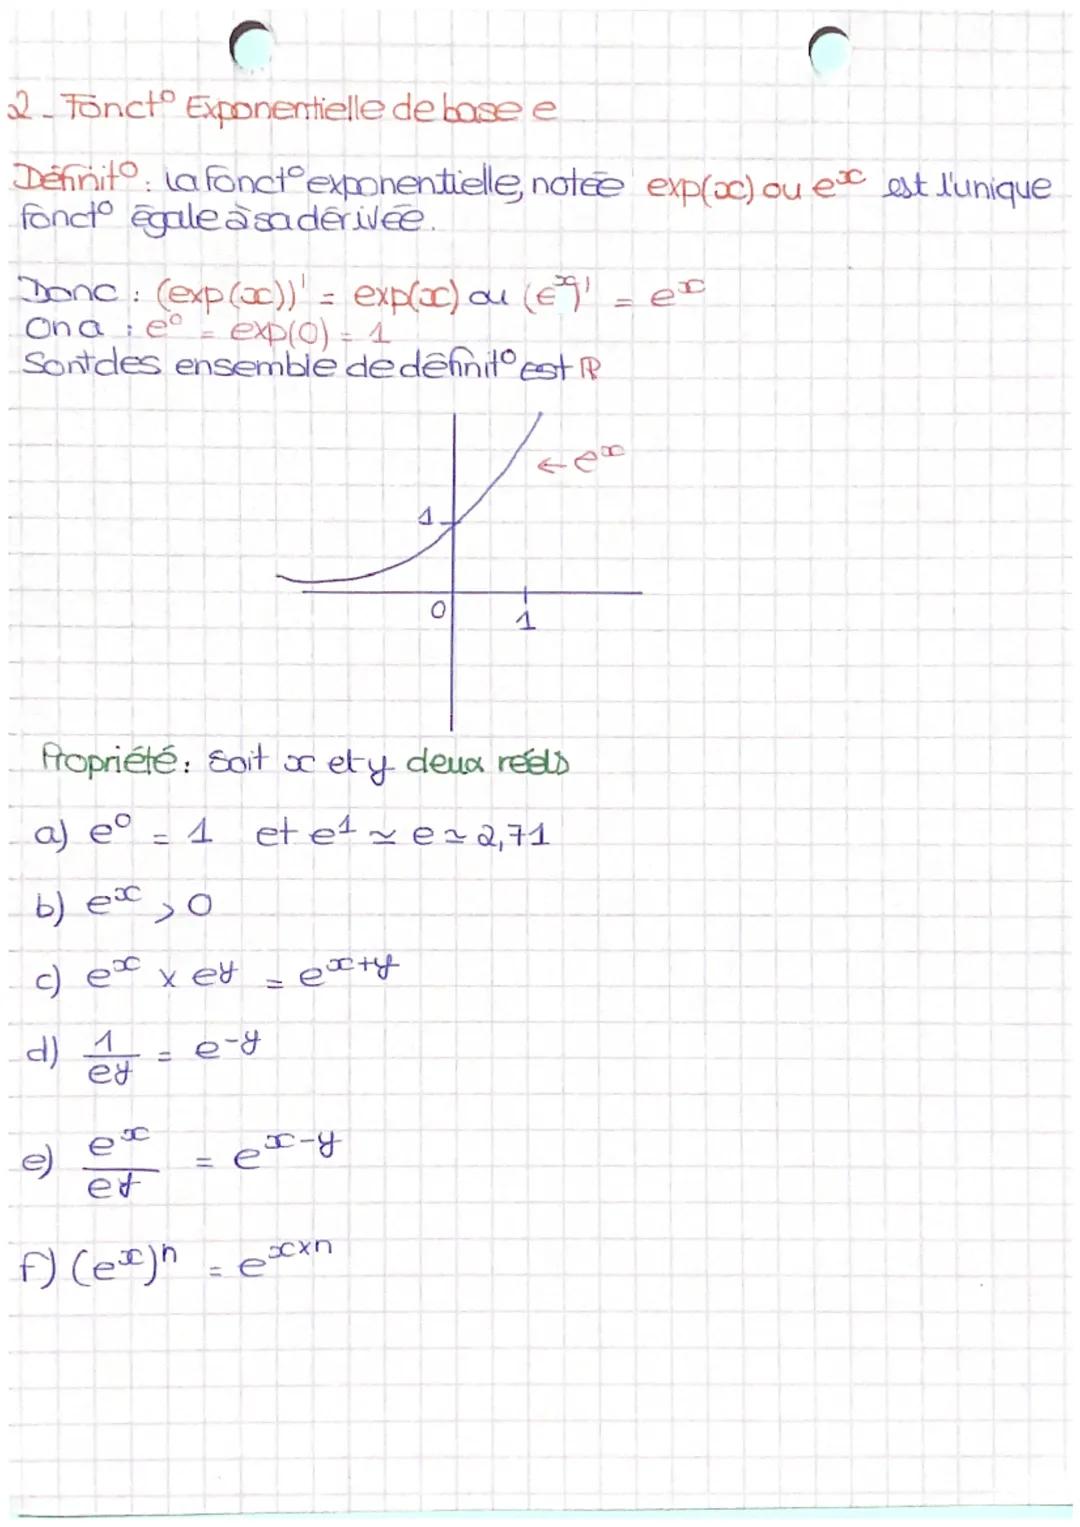 2 - Fonct° Exponentielle de base e
Définit° : la fonct° exponentielle, notée exp(x) ou eˣ est l'unique
fonct° égale à sa dérivée.
Donc : (exp(x))' = exp(x) ou (eˣ)' = eˣ
On a : e⁰ = exp(0) = 1
Sont des ensemble de définit° est ℝ
← eˣ
1
0
1
Propriété : Soit x et y deux réels
a) e⁰ = 1 et e¹ ≃ e ≃ 2,71
b) eˣ > 0
c) eˣ × eʸ = eˣ⁺ʸ
d) 1/eʸ = e⁻ʸ
e) eˣ/eʸ = eˣ⁻ʸ
f) (eˣ)ⁿ = e^(x×n)